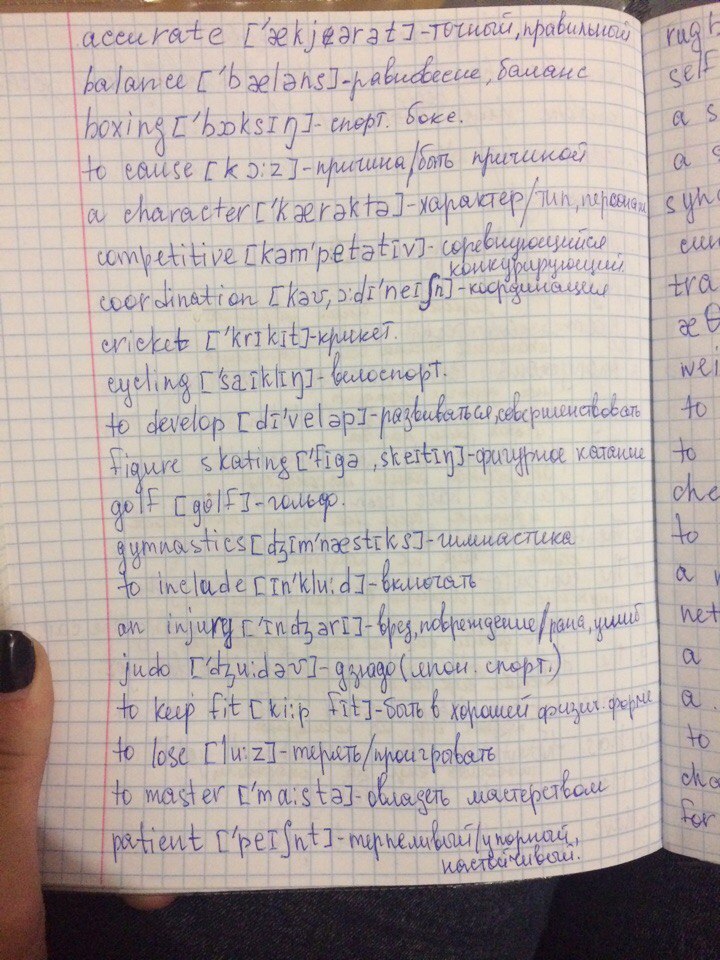 accurate ['ækjərət]-точный, правильный
balance ['bæləns]-равновесие, баланс
boxing ['bɔksɪŋ]-спорт. бокс.
to cause [kɔ:z]-причина/быть причиной
a character ['kærəktə]-характер/тип, персонаж
competitive [kəm'petətɪv]-соревнующийся
конкурирующий
coordination [kəʊ,ɔ:dɪ'neɪʃn]-координация
cricket ['krɪkɪt]-крикет.
cycling ['saɪklɪŋ]-велоспорт.
to develop [dɪ'veləp]-развиваться, совершенствовать
figure skating ['fɪgə ,skeɪtɪŋ]-фигурное катание
golf [gɒlf]-гольф.
gymnastics [dʒɪm'næstɪks]-гимнастика
to include [ɪn'klu:d]-включать
an injury ['ɪndʒərɪ]-вред, повреждение/рана, ушиб
judo ['dʒu:dəʊ]-дзюдо (япон. спорт.)
to keep fit [ki:p fɪt]-быть в хорошей физич. форме
to lose [lu:z]-терять/проигрывать
to master ['ma:stə]-овладеть мастерством
patient ['peɪʃnt]-терпеливый/упорный,
настойчивый.
rug
self
a s
a
syn
tra
æθ
wei
to
to
che
to
a
net
a
a
to
cha
for